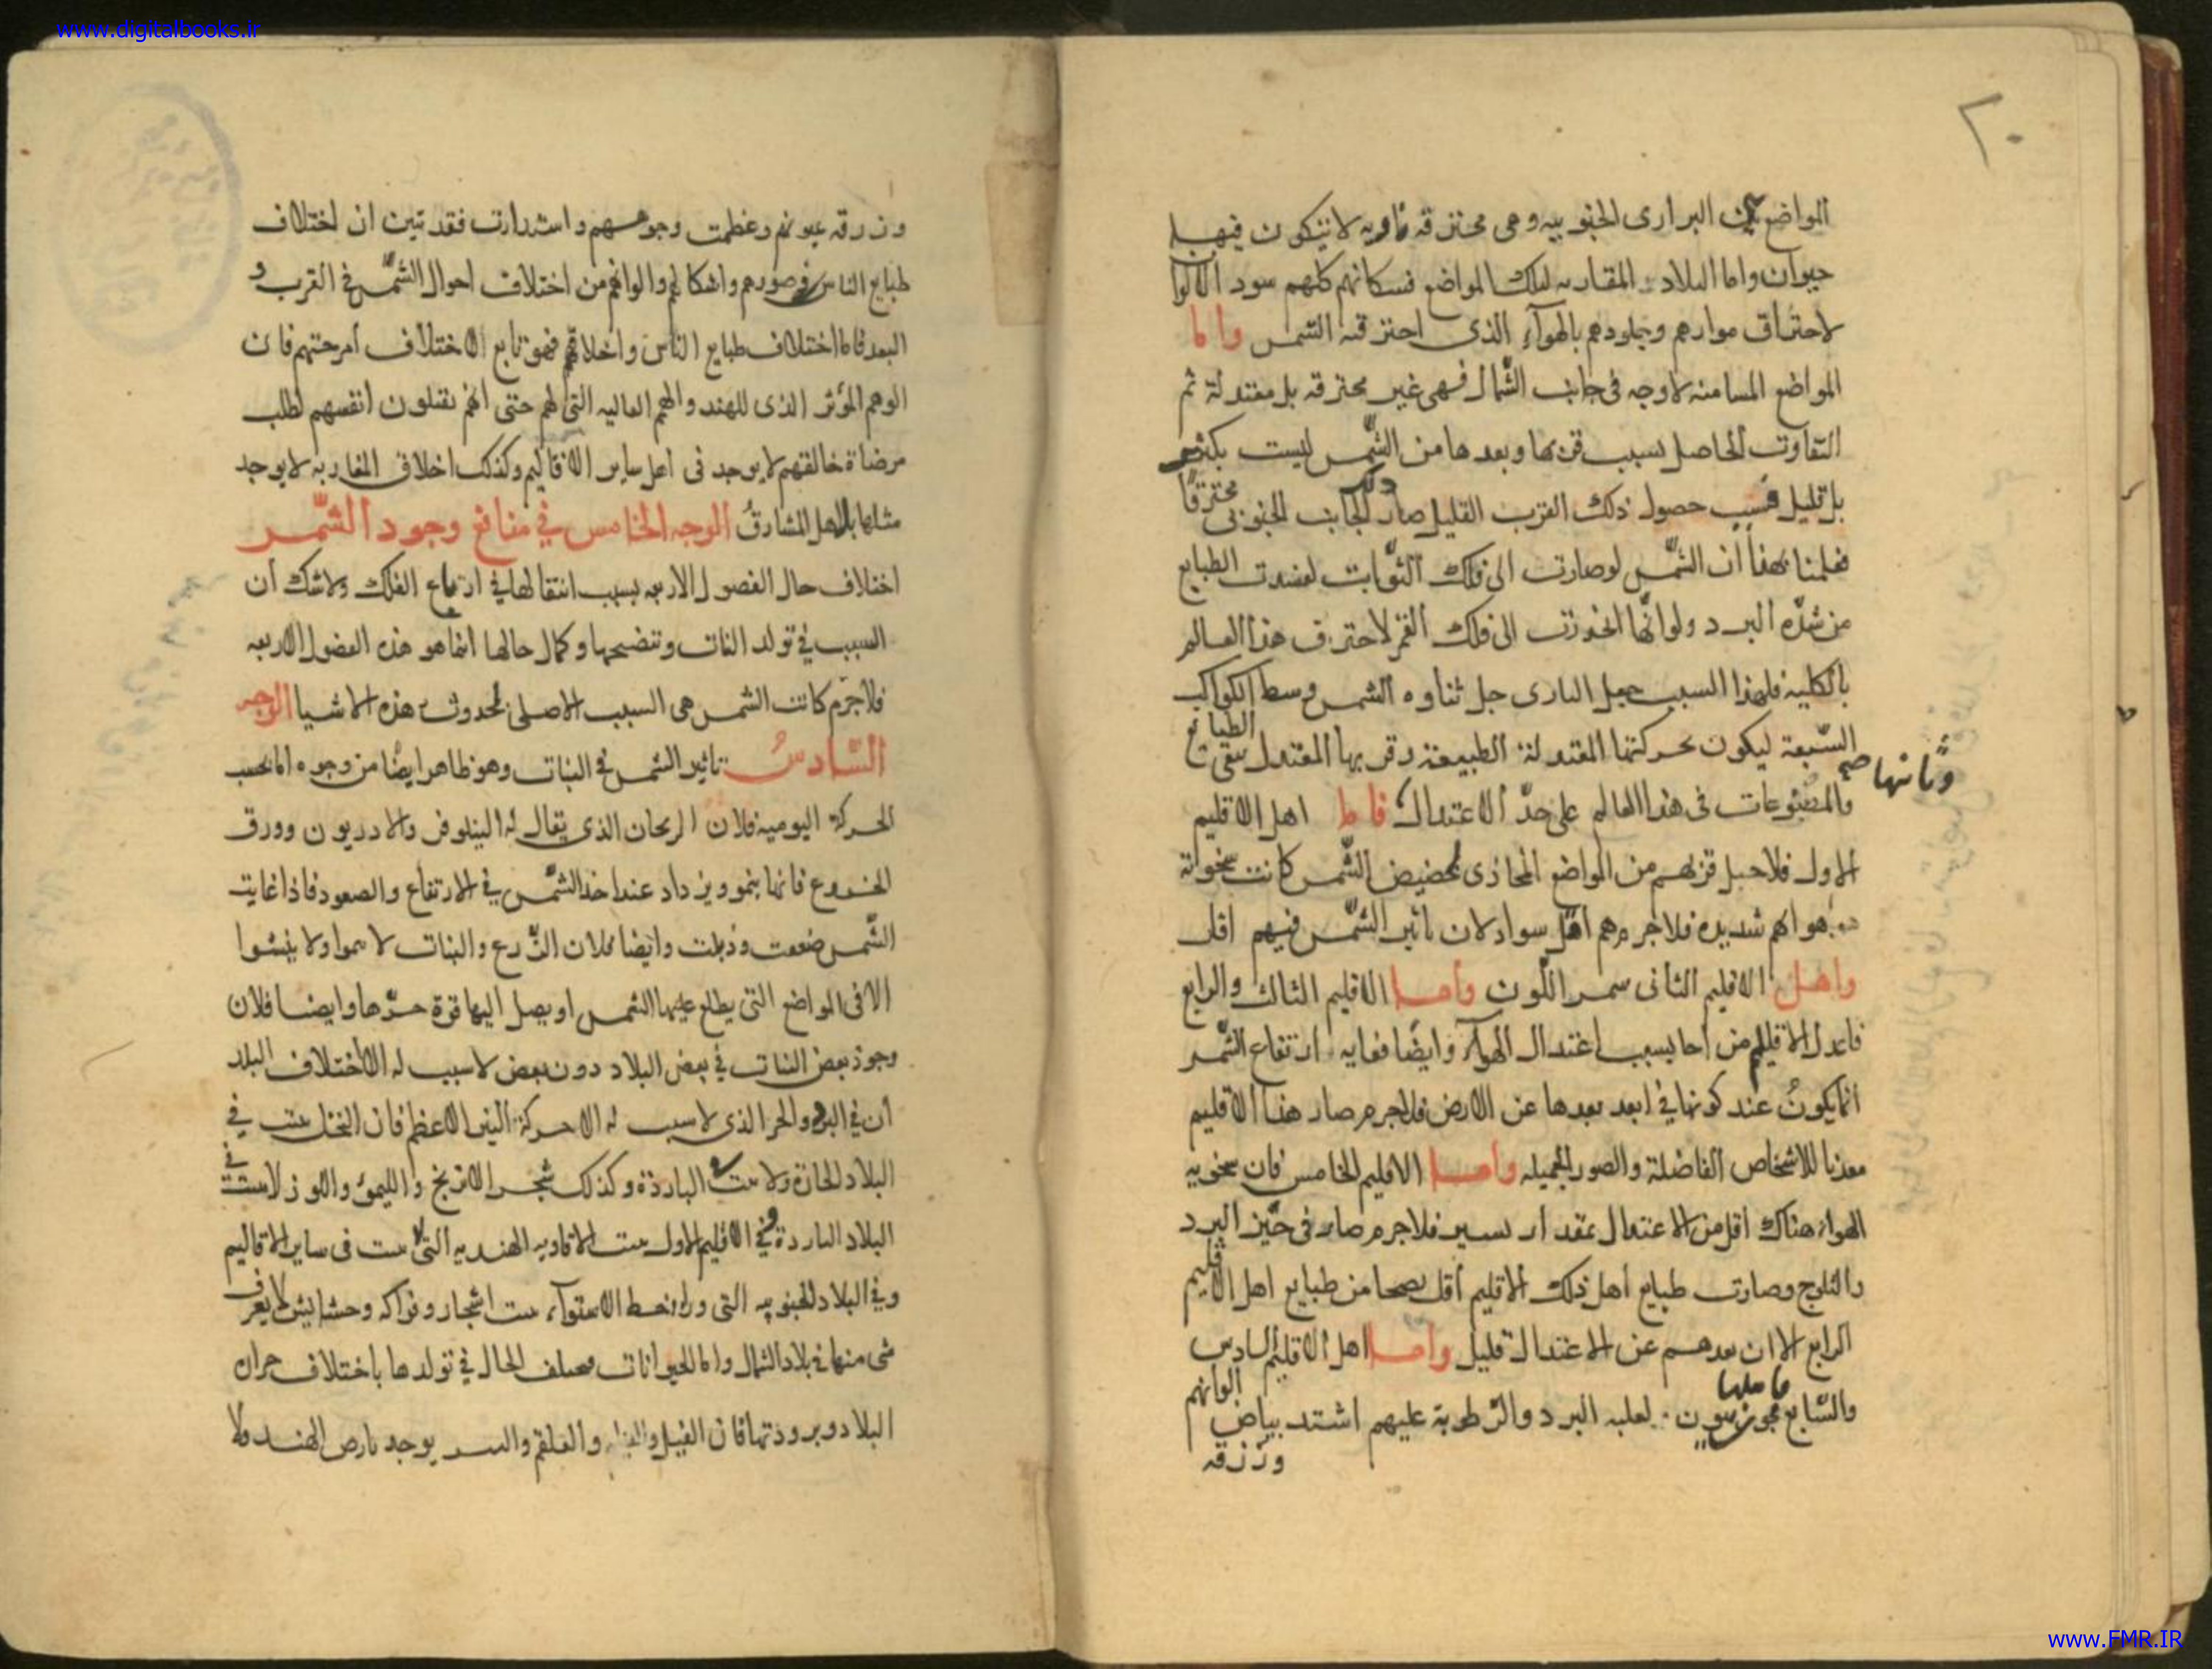 www.digitalbooks.ir
٢٠
المواضع البرارى الجنوبيه وهى محترقه ناريه لا يتكون فيها
حيوان واما البلاد المقاربه لتلك المواضع فسكانهم كلهم سود الالوا
لاحتراق موادهم وجلودهم بالهوآء الذى احترقته الشمس واما
المواضع المسامته لاوجه فى جانب الشمال فهى غير محترقه بل معتدلة ثم
التفاوت الحاصل بسبب قربها وبعدها من الشمس ليست بكثير
بل قليل فبسبب حصول ذلك القرب القليل صار الجانب الجنوبى محترقا
فعلمنا بهذا ان الشمس لو صارت الى فلك الثوابت لفسدت الطبايع
من شدّه البرد ولو انّها انحدرت الى فلك القمر لاحترق هذا العالم
بالكلية فلهذا السبب جعل البارى جل ثناوه الشمس وسط الكواكب
السّبعة ليكون بحركتها المعتدلة الطبيعة وقربها المعتدل يبقى الطبايع
وثانيها صح
والمطبوعات فى هذا العالم على حدّ الاعتدال فاما اهل الاقليم
الاول فلاجل قربهم من المواضع المحاذى لحضيض الشّمس كانت سخونة
هوائهم شديده فلا جرم هم اقل سواد لان تاثير الشّمس فيهم اقل
واهل الاقليم الثانى سمر اللّون واما الاقليم الثالث والرابع
فاعدل الاقاليم مزاحا بسبب اعتدال الهوآء وايضا فغايه ارتفاع الشّمس
انما يكونُ عند كونها فى ابعد بعدها عن الارض فلا جرم صار هذا الاقليم
معدنا للاشخاص الفاضلة والصور الجميله واما الاقليم الخامس فان سخونيه
الهواء هناك اقل من الاعتدال بمقدار يسير فلا جرم صار فى حيّز البرد
والثلوج وصارت طبايع اهل ذلك الاقليم اقل نضجا من طبايع اهل الاقليم
الرابع الا ان بعدهم عن الاعتدال قليل واما اهل الاقليم السادس
والسّابع لغلبه البرد والرّطوبة عليهم اشتد بياض الوانهم
وزرقه
وزرقه عيونهم وعظمت وجوههم واستدارت فقد تبين ان اختلاف
طبايع الناس فى صورهم واشكالهم والوانهم من اختلاف احوال الشمس فى القرب و
البعد فاما اختلاف طبايع الناس واخلاقهم فهو تابع لاختلاف امزجتهم فان
الوهم المؤثر الذى للهند والهمم العاليه التى لهم حتى انهم يقتلون انفسهم لطلب
مرضاة خالقهم لا يوجد فى اهل ساير الاقاليم وكذلك اخلاق المغاربه لا يوجد
مثلها باهل المشارق الوجه الخامس فى منافع وجود الشّمس
اختلاف حال الفصول الاربعه بسبب انتقالها فى ارباع الفلك ولا شك ان
السبب فى تولد النبات ونضجها وكمال حالها انما هو هذه الفصول الاربعه
فلا جرم كانت الشمس هى السبب الاصلى لحدوث هذه الاشيا الوجه
السّادسُ تاثير الشمس فى النبات وهو ظاهر ايضًا من وجوه اما بحسب
الحركة اليومية فلان الريحان الذى يقال له النيلوفر والادريون وورق
الخروع فانها ينمو ويزداد عند اخذ الشمس فى الارتفاع والصعود فاذا غابت
الشّمس ضعفت وذبلت وايضا فلان الزّرع والنبات لا ينموا ولا ينشوا
الا فى المواضع التى يطلع عليها الشمس او يصل اليها قوة حرّها وايضا فلان
وجود بعض النبات فى بعض البلاد دون بعض لا سبب له الا اختلاف البلد
ان فى البرد والحر الذى لا سبب له الا حركة النير الاعظم فان النخل ينبت فى
البلاد الحارة ولا ينبت فى الباردة وكذلك شجر الاترنج والليمو واللوز لا ينبت فى
البلاد الباردة وفى الاقليم الاول ينبت الافاويه الهنديه التى لا ينبت فى ساير الاقاليم
وفى البلاد الجنوبيه التى ورا خط الاستوآء ينبت اشجار وفواكه وحشايش لا يعرف
شى منها فى بلاد الشمال واما الحيوانات فيختلف الحال فى تولدها باختلاف حراره
البلاد وبرودتها فان الفيل و والببر يوجد بارض الهند ولا
www.FMR.IR